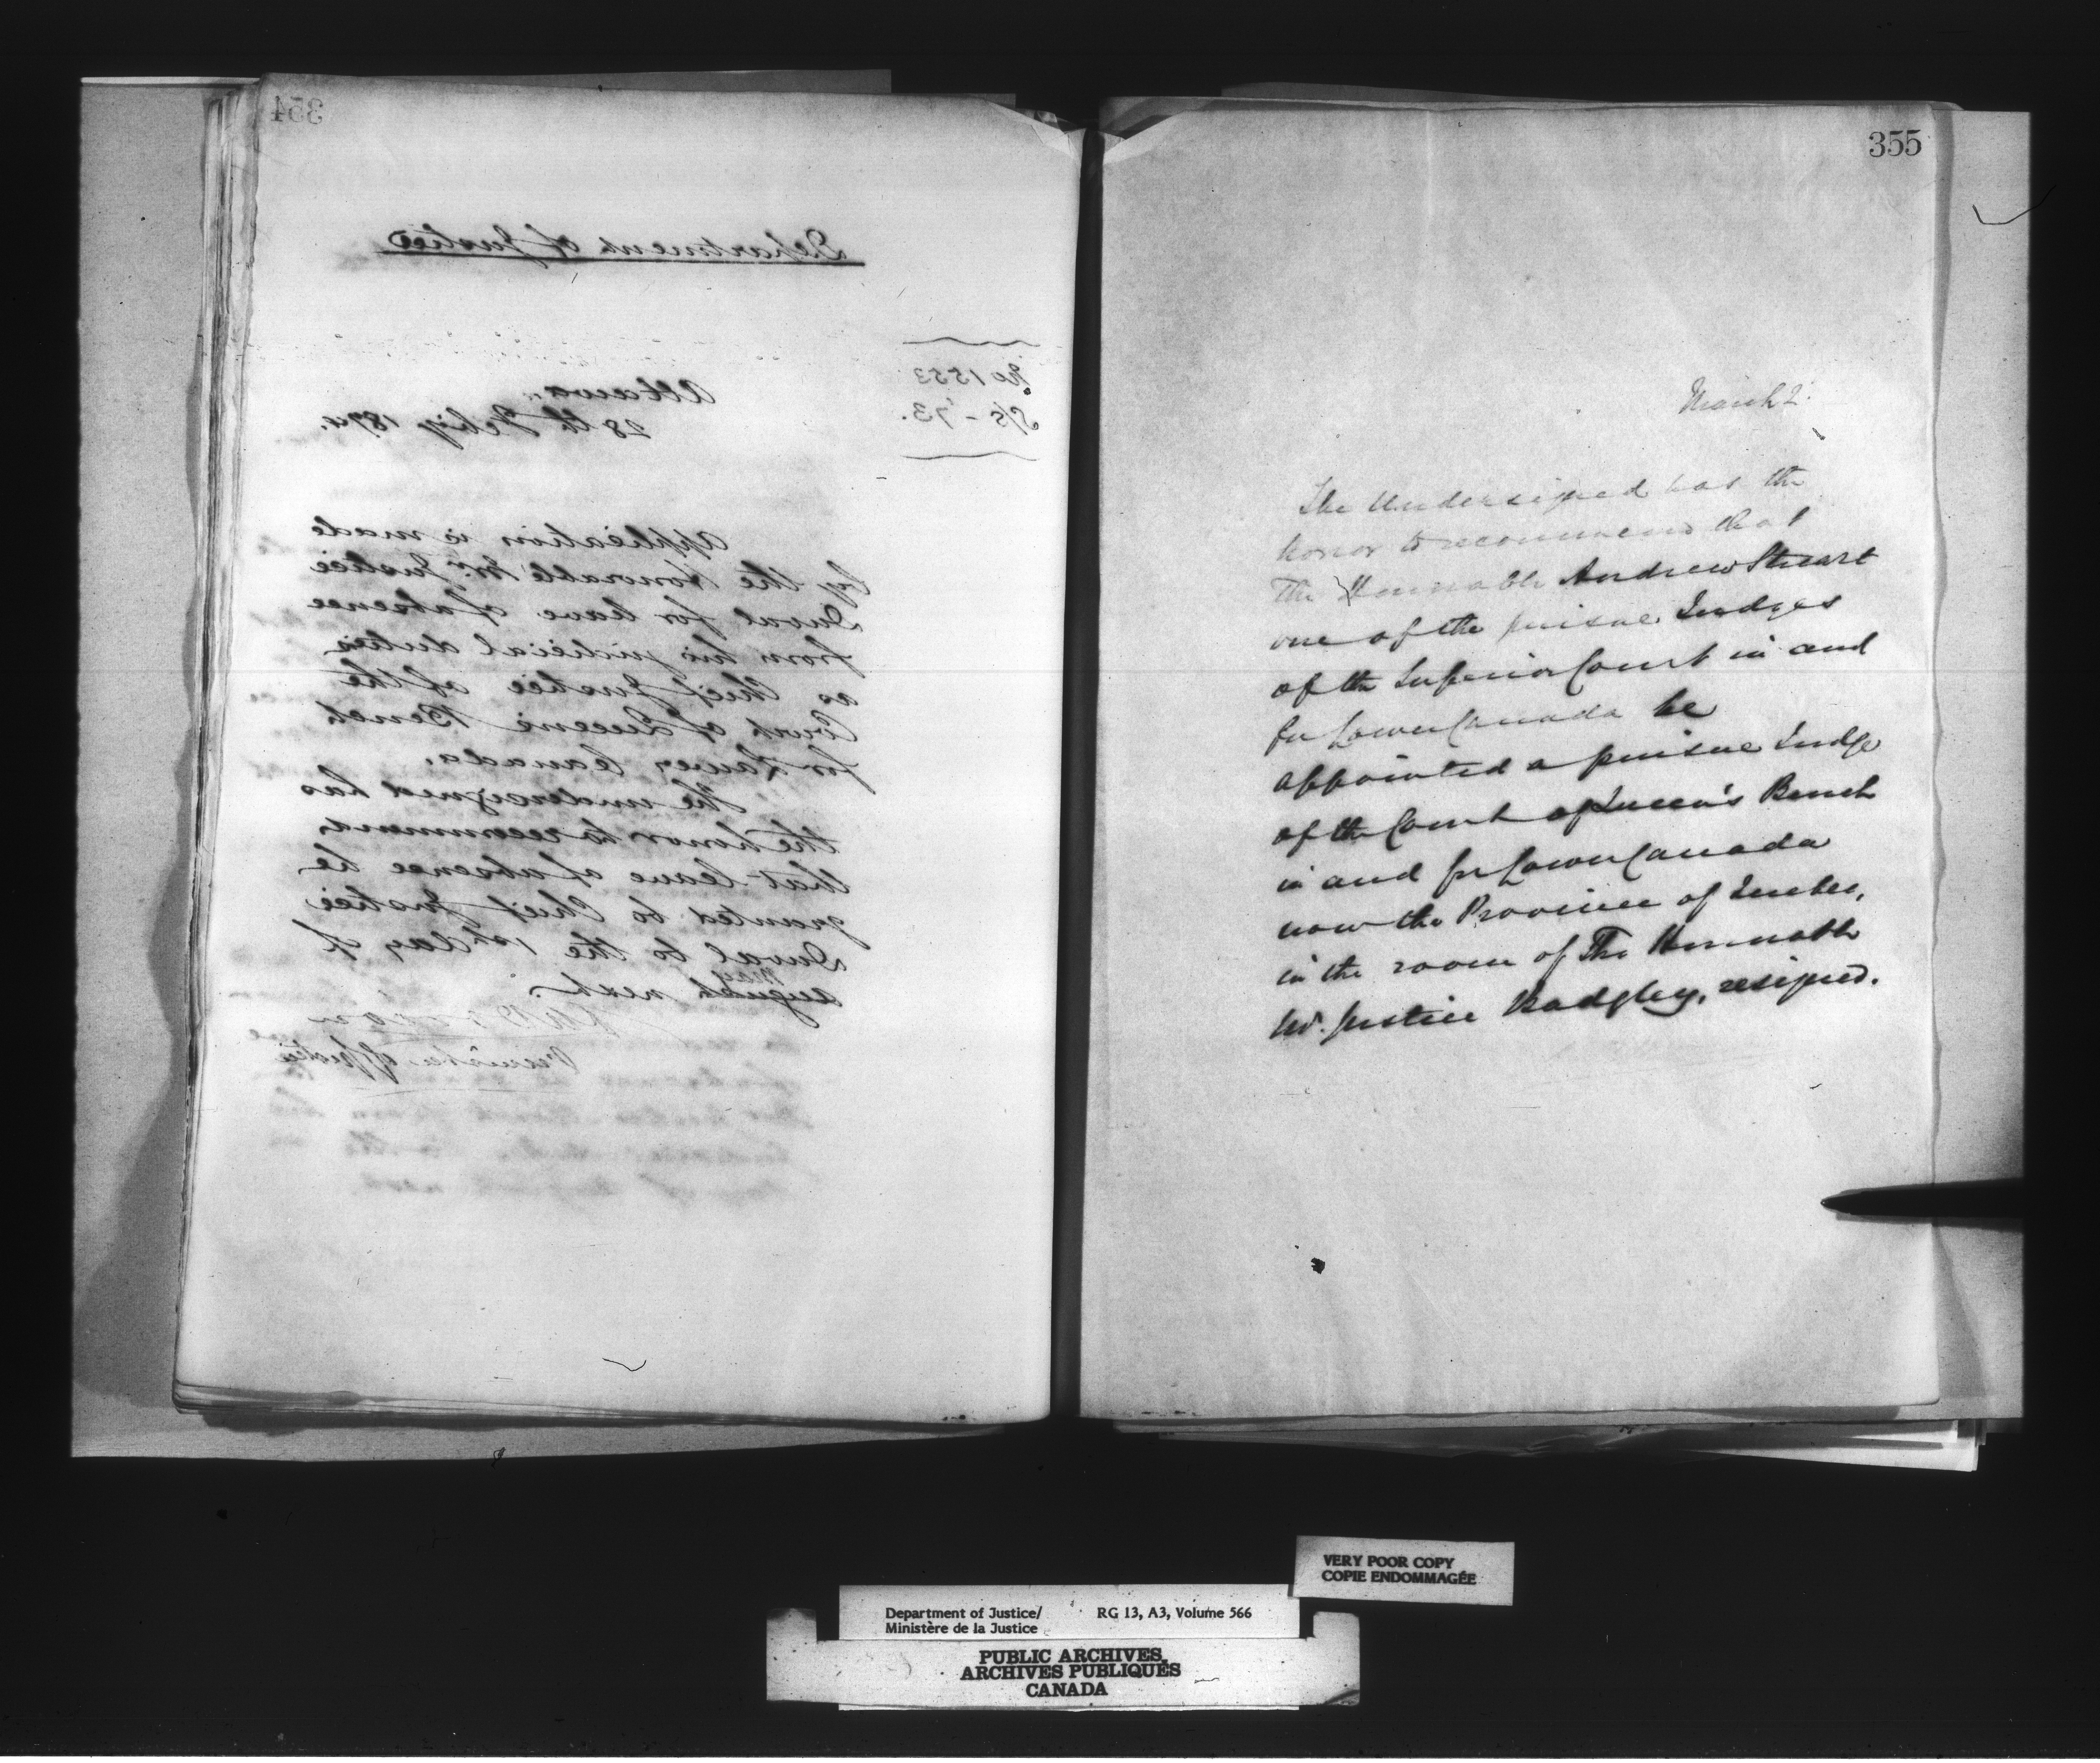 354
Department of Justice
No 1553
S/S - '73.
Ottawa.
28th Feby 1874.
Application is made
by the Honorable Mr. Justice
Duval for leave of absence
from his judicial duties
as Chief Justice of the
Court of Queens Bench
for Lower Canada.
The undersigned has
the honor to recommend
that leave of absence be
granted to Chief Justice
Duval to the 1st day of
May
August next.
Minister of Justice
355
March 2.
The Undersigned has the
honor to recommend that
The Honorable Andrew Stuart
one of the puisne Judges
of the Superior Court in and
for Lower Canada be
appointed a puisne Judge
of the Court of Queen's Bench
in and for Lower Canada
now the Province of Quebec,
in the room of The Honorable
Mr. Justice Badgley, resigned.
VERY POOR COPY
COPIE ENDOMMAGÉE
Department of Justice/ RG 13, A3, Volume 566
Ministère de la Justice
PUBLIC ARCHIVES
ARCHIVES PUBLIQUES
CANADA